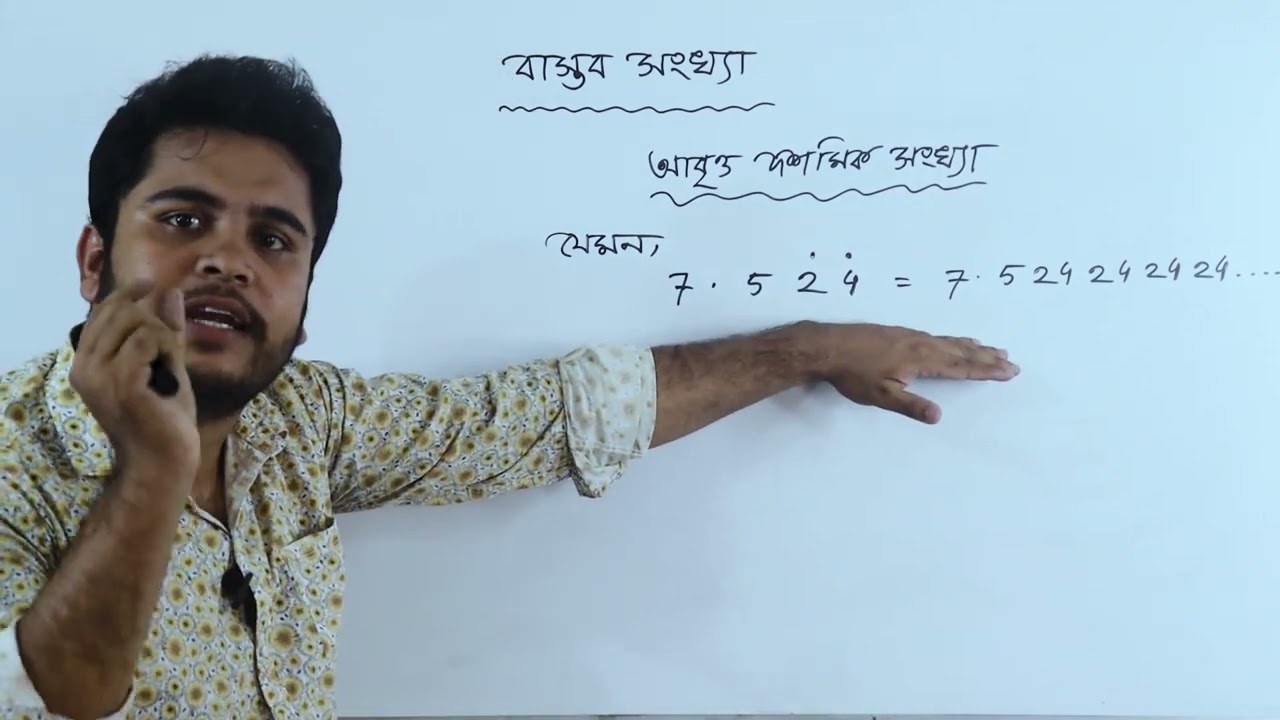 বাস্তব সংখ্যা
আবৃত্ত দশমিক সংখ্যা
যেমন,
7.52̇4̇ = 7.524242424....